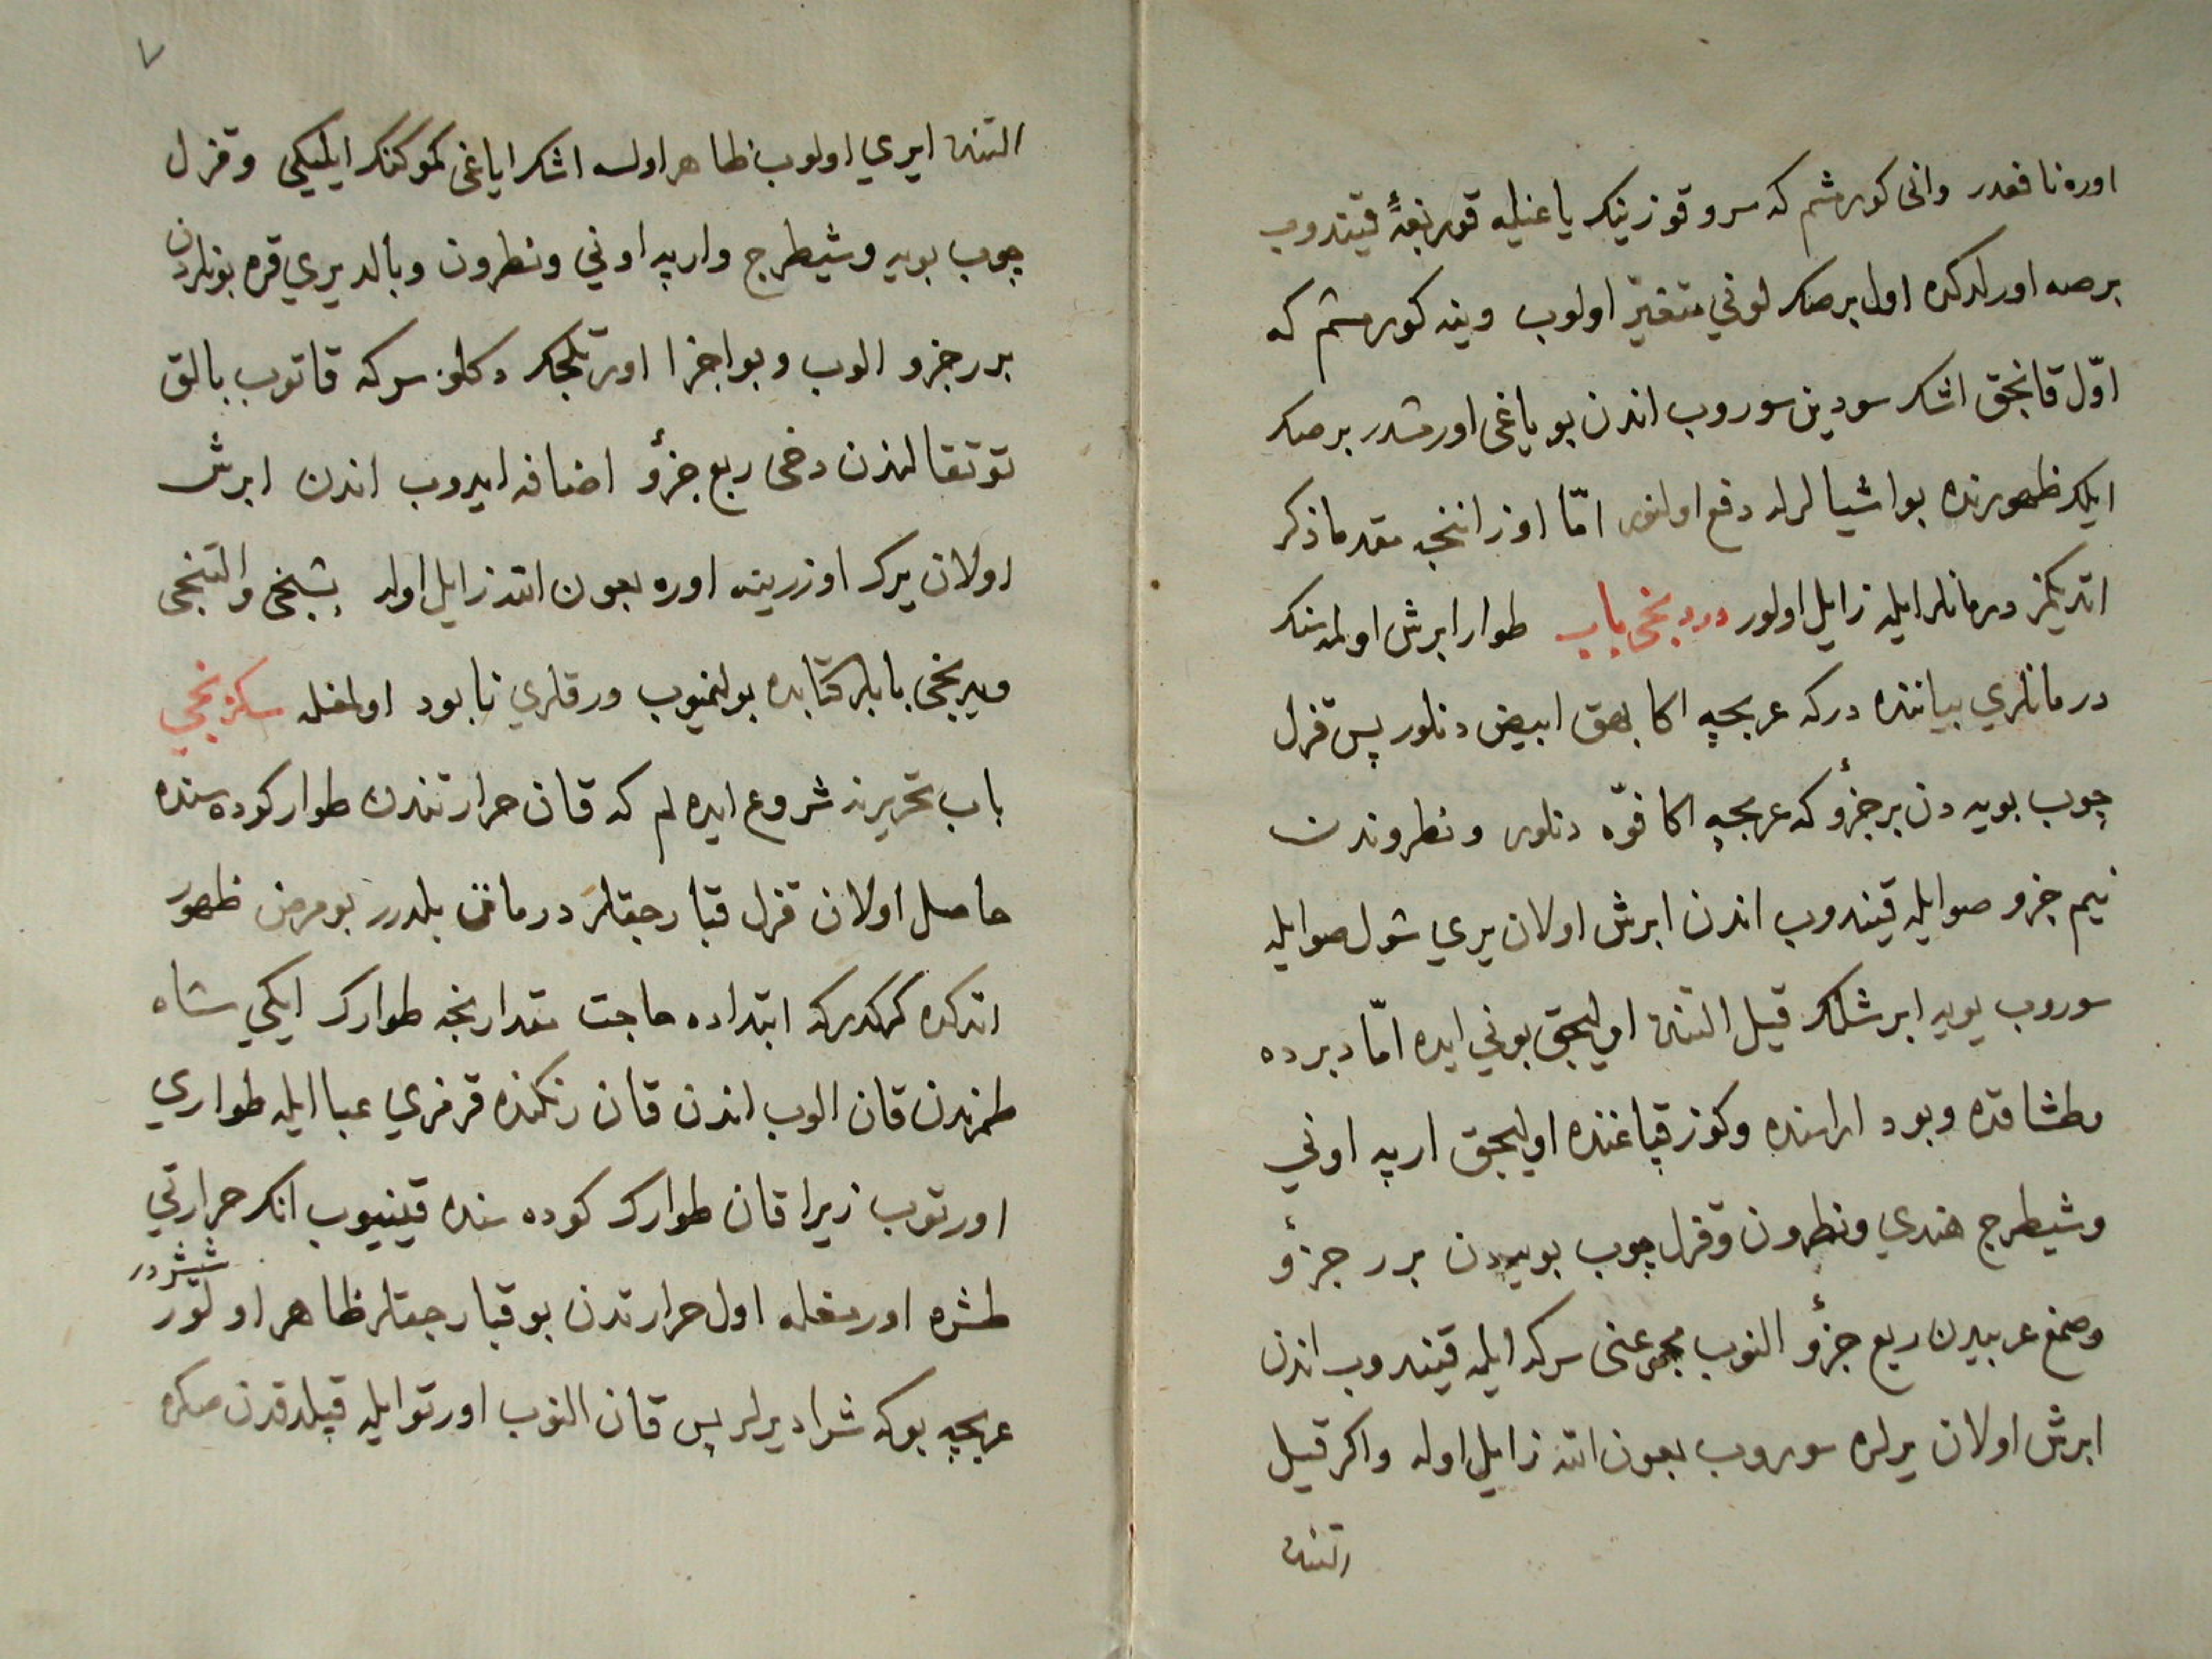 اوره نافعدر وانی کورمشم که سرو قوزینک یاغیله قوربغهٔ قیندوب
برصه اورلدکده اول برصک لونی متغیّر اولوب وینه کورمشم که
اوّل قانجق اشک سودین سوروب اندن بو یاغی اورمشدر برصک
ایلک ظهورنده بو اشیالرله دفع اولنور امّا اوزاننجه مقدما ذکر
اتدیکمز درمانلر ایله زایل اولور دردنجی باب طوار ابرش اولمەنک
درمانلری بیاننده درکه عربجه اکا بهق ابیض دنلور پس قزل
چوب بویه دن بر جزؤ که عربجه اکا فوّه دنلور ونطروندن
نیم جزو صو ایله قیندوب اندن ابرش اولان یری شول صو ایله
سوروب یویه ابرشلک قیل التنده اولیجق بونی ایده امّا دبرده
وطشاقده وبود اراسنده وکوز قپاغنده اولیجق ارپه اونی
وشیطرج هندی ونطرون وقزل چوب بوییه دن برر جزؤ
وصمغ عربیدن ربع جزؤ النوب مجموعنی سرکه ایله قیندوب اندن
ابرش اولان یرلره سوروب بعون الله زایل اوله واکر قیل
التنده
٧
التنده ایری اولوب ظاهر اولسه اشک ایاغی کموکنک ایلیکی وقزل
چوب بویه وشیطرج وارپه اونی ونطرون وبالدیری قره بونلردن
برر جزو الوب وبو اجزا اورتیلجک دکلو سرکه قاتوب بالق
توتقالندن دخی ربع جزؤ اضافه ایدوب اندن ابرش
اولان یرک اوزرینه اوره بعون الله زایل اوله بشنجی والتنجی
ویدنجی بابلر کتابده بولنمیوب ورقلری نابود اولمغله سکزنجی
باب تحریرنه شروع ایده لم که قان حرارتندن طوار کوده سنده
حاصل اولان قزل قبارجقلر درمانن بلدرر بو مرض ظهور
اتدکده کرکدرکه ابتداده حاجت مقدارنجه طوارک ایکی شاه
طمرندن قان الوب اندن قان رنکنده قرمزی عبا ایله طواری
اورتوب زیرا قان طوارک کوده سنده قینیوب انک حرارتی
طشره اورمغله اول حرارتدن بو قبارجقلر ظاهر اولور
ششردر
عربجه بوکه شرا دیرلر پس قان النوب اورتو ایله قپلدقدن صکره